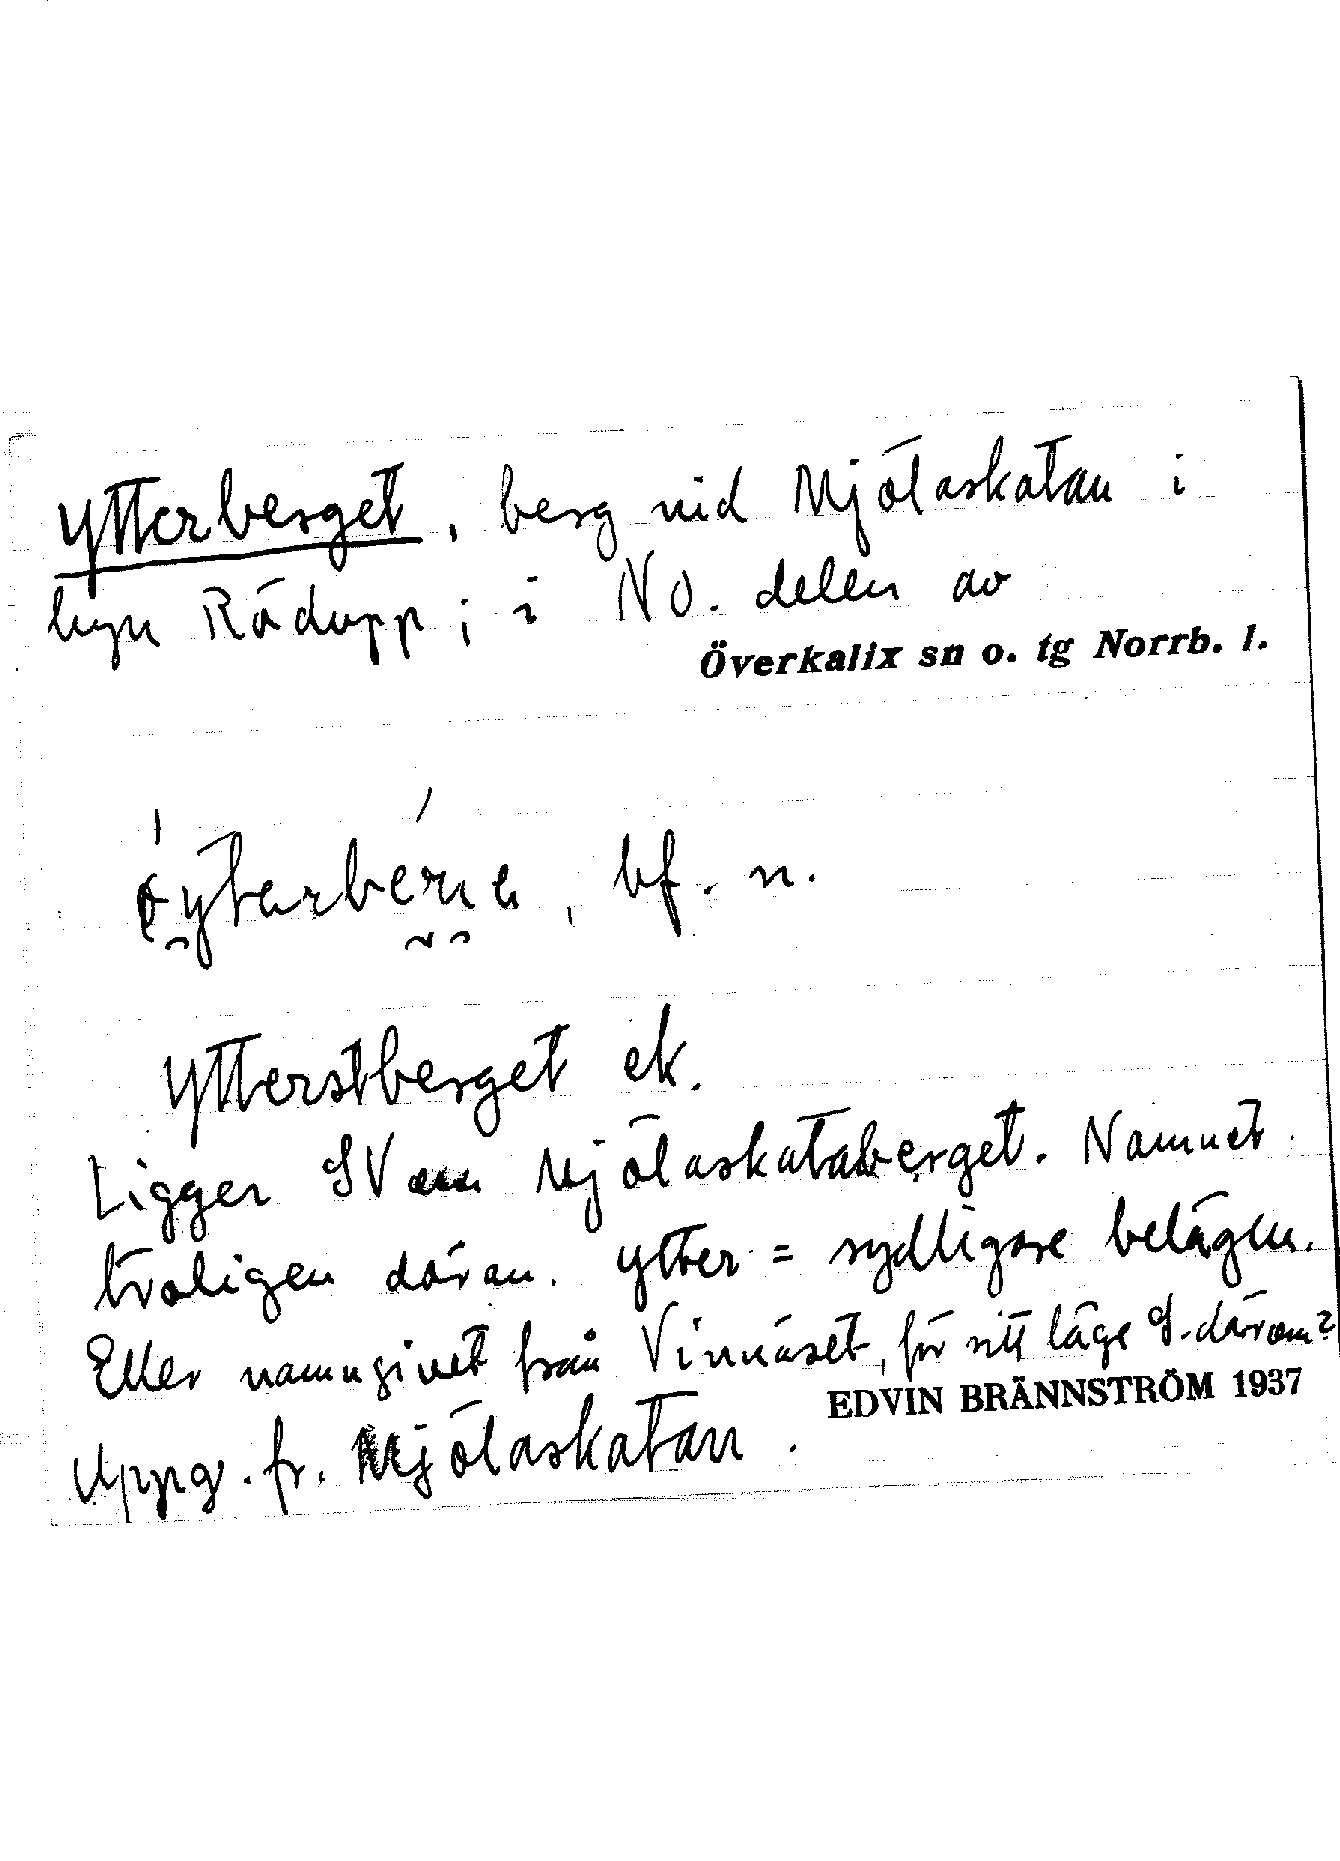 Ytterberget, berg vid Mjölaskatan i
byn Rödupp; i NO. delen av
Överkalix sn o. tg Norrb. l.
bf. n.
Ytterstberget ek.
Ligger SV om Mjölaskataberget. Namnet
troligen därav. Ytter = sydligare belägen.
Eller namngivet från Vinnäset, för sitt läge S. därom?
EDVIN BRÄNNSTRÖM 1937
Uppg. fr. Mjölaskatan.